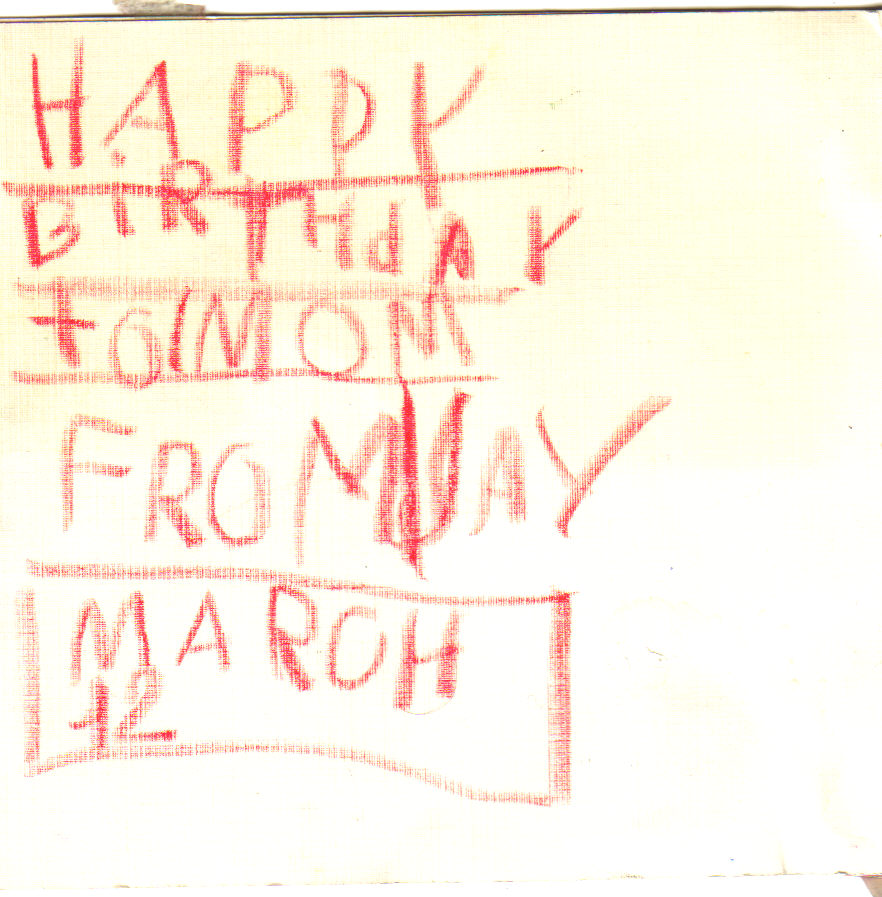 HAPPY
BIRTHdAY
to MOM
FROM JAY
MARCH
12